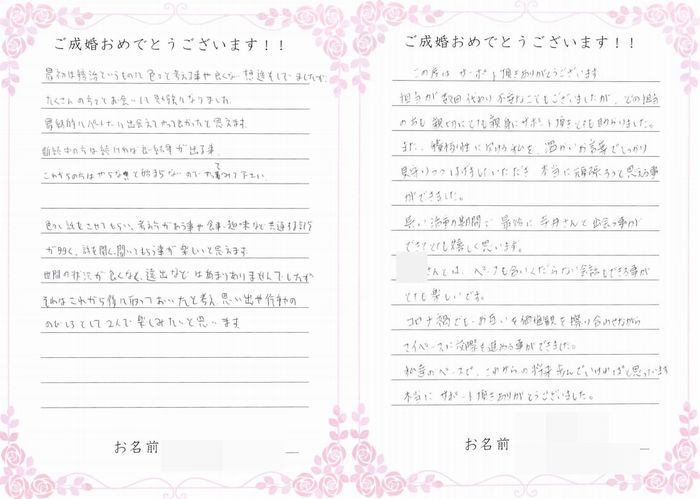 ご成婚おめでとうございます！！
最初は婚活というものに色々と考え事や良くない想造をしていましたが、
たくさんの方とお会いして勉強になりました。
最終的にパートナーに出会えてやって良かったと思えます。
婚活中の方は続ければ良い結果が出る事、
これからの方はやらないと始まらないので進めて下さい。
色々な話をさせてもらい、考え方がある事や食事、趣味など共通する部分
が多く、話を聞く、聞いてもらう事が楽しいと思えます。
世間の状況が良くなく、遠出などはあまりありませんでしたが
それはこれから作に取っておいたと考え、思い出や行動の
のびしろとして2人で楽しみたいと思います。
お名前
ご成婚おめでとうございます！！
この度は サポート頂きありがとうございます
担当が数回代わり不安なこともございましたが、どの担当
の方も親切にとても親身にサポート頂きとても助かりました。
また、積極性に欠ける私を、温かいお言葉でしっかり
見守りつつはげましていただき 本当に頑張ろうと思える事
ができました。
長い活動期間で最後に 寺井さんと出会う事が
できてとても嬉しく思います。
さんとは、ペースも合いくだらない会話もできる事が
とても楽しいです。
コロナ禍でも お互いを価値観を擦り合わせながら
マイペースに交際を進める事ができました。
私達のペースで、これからの将来歩んでいければと思っています
本当に サポート頂きありがとうございました。
お名前